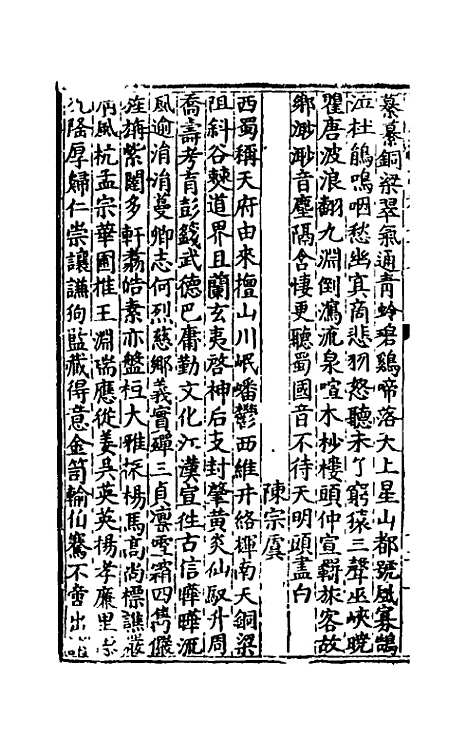 綦綦銅梁翠氣通青蛉碧鷄啼落天上星山都號風寡鵠
泣杜鵑嗚咽愁幽冥商悲羽怒聽未了窮猿三聲巫峽曉
瞿唐波浪翻九淵倒瀉流泉喧木杪樓頭仲宣羈旅客故
鄉渺渺音塵隔含悽更聽蜀國音不待天明頭盡白
陳宗虞
西蜀稱天府由來擅山川岷嶓鬱西維井絡輝南天銅梁
阻斜谷僰道界且蘭玄夷啓神后支封肇黃炎仙馭升周
喬壽考育彭籛武德巴庸勤文化江漢宣往古信曄曄流
風逾涓涓蔓卿志何烈慈鄉義實殫三貞凛雪霜四雋儼
旌旃紫閣多軒翥皓素亦盤桓大雅採楊馬高尚標譙嚴
病風杭孟宗華圃推王淵瑞應從姜吳英英楊孝廉里
隆厚歸仁崇讓謙狗監藏得意金笥輪伯騫不嗇出